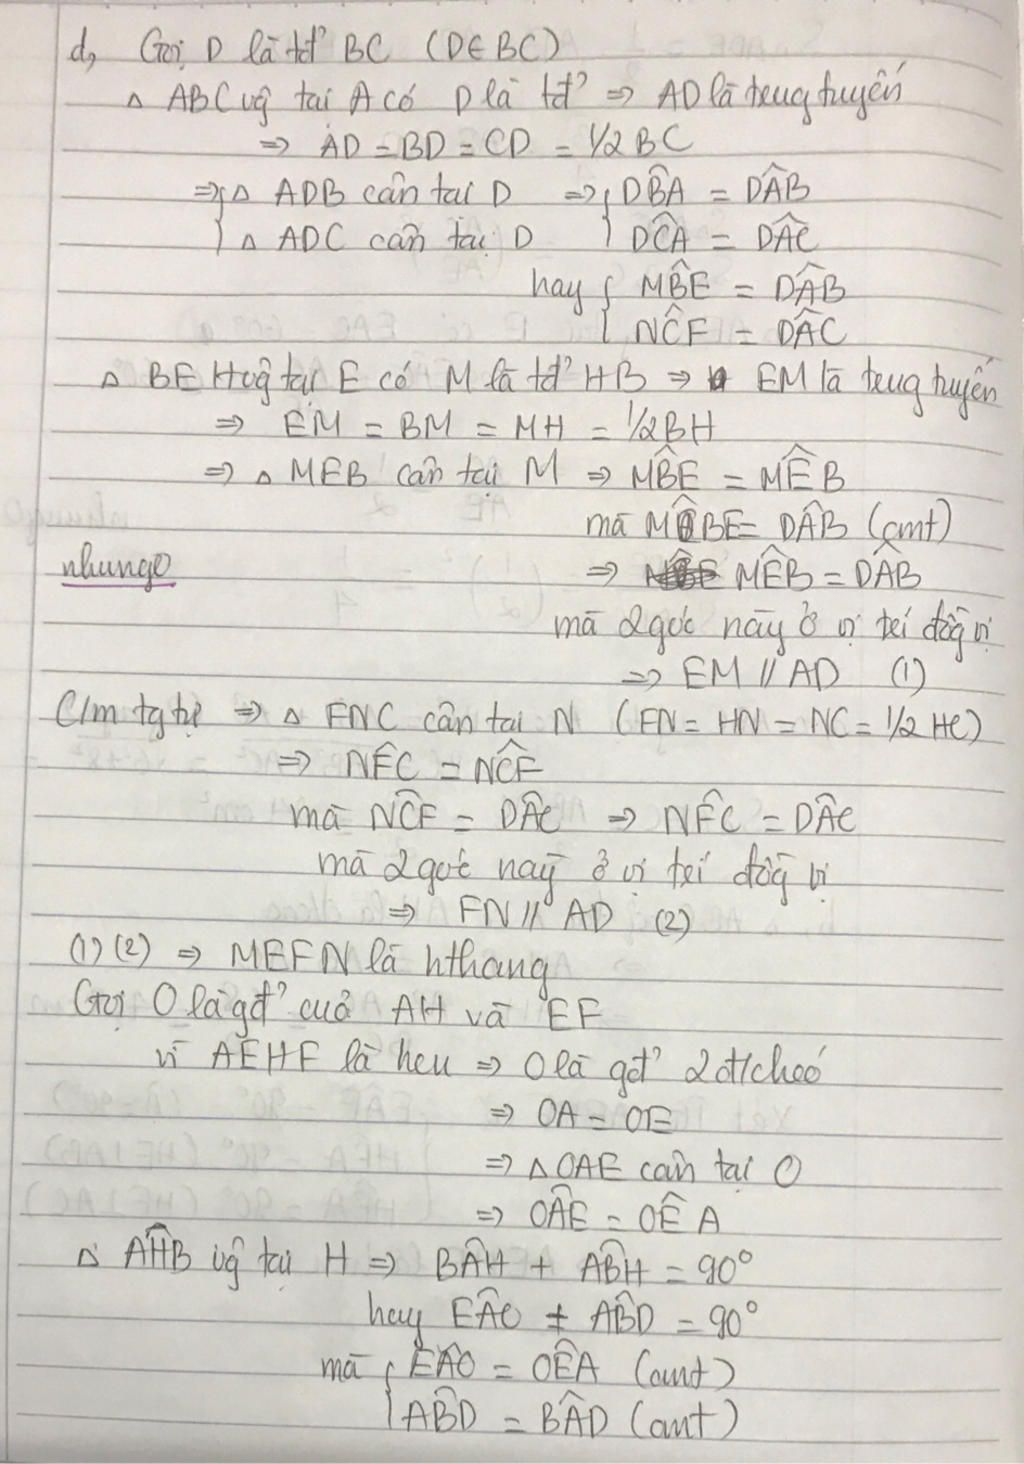 d, Gọi D là tđ' BC (D∈BC)
△ ABC vĝ tại A có D là tđ' ⇒ AD là trung tuyến
⇒ AD = BD = CD = 1/2 BC
⇒ { △ ADB cân tại D ⇒ { DB̂A = DÂB
{ △ ADC cân tại D { DĈA = DÂC
hay { MB̂E = DÂB
{ NĈF = DÂC
△ BEH vĝ tại E có M là tđ' HB ⇒ EM là trung tuyến
⇒ EM = BM = MH = 1/2BH
⇒ △ MEB cân tại M ⇒ MB̂E = MÊB
mà MB̂E = DÂB (cmt)
nhungo ⇒ MÊB = DÂB
mà 2 góc này ở vị trí đồg vị
⇒ EM // AD (1)
C/m tg tự ⇒ △ FNC cân tại N (FN = HN = NC = 1/2 HC)
⇒ NF̂C = NĈF
mà NĈF = DÂC ⇒ NF̂C = DÂC
mà 2 góc này ở vị trí đồg vị
⇒ FN // AD (2)
(1) (2) ⇒ MEFN là hthang
Gọi O là gđ' của AH và EF
vì AEHF là hcn ⇒ O là gđ' 2 đ/chéo
⇒ OA = OE
⇒ △ OAE cân tại O
⇒ OÂE = OÊA
△ AĤB vĝ tại H ⇒ BÂH + AB̂H = 90°
hay EÂO + AB̂D = 90°
mà { EÂO = OÊA (cmt)
{ AB̂D = BÂD (cmt)